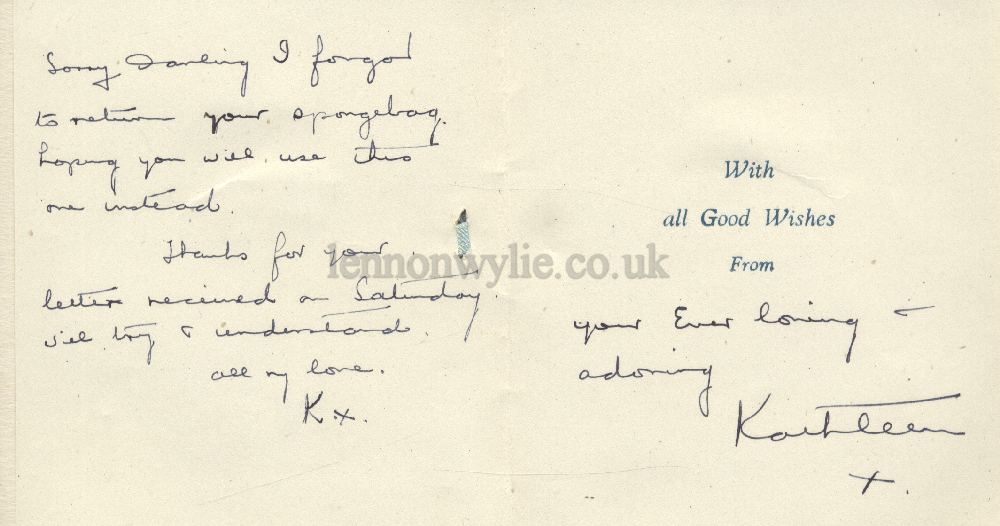 Sorry Darling I forgot
to return your spongebag.
hoping you will use this
one instead.
Thanks for your
letter received on Saturday.
I'll try & understand.
all my love.
K x.
With
all Good Wishes
From
your Ever loving &
adoring
Kathleen
x.
lennonwylie.co.uk